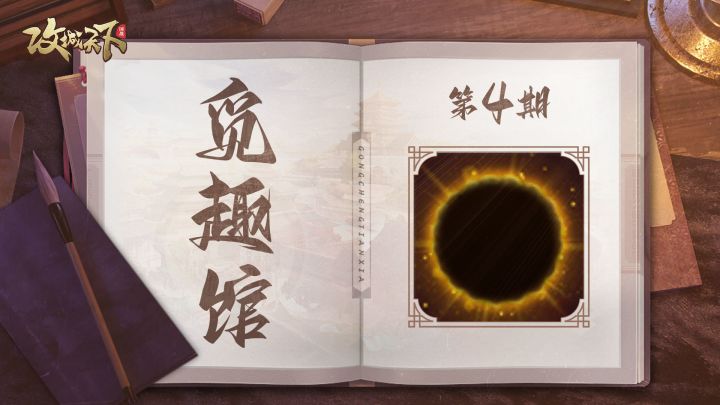 攻城天下
觅趣馆
GONGCHENGTIANXIA
第4期